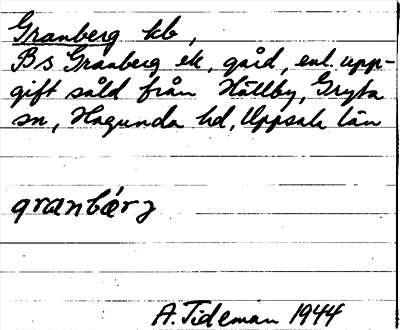 Granberg hb,
Bs Granberg ek, gård, enl. upp-
gift såld från Hällby, Gryta
sn, Hagunda hd, Uppsala län
granbérj
A. Tideman 1944